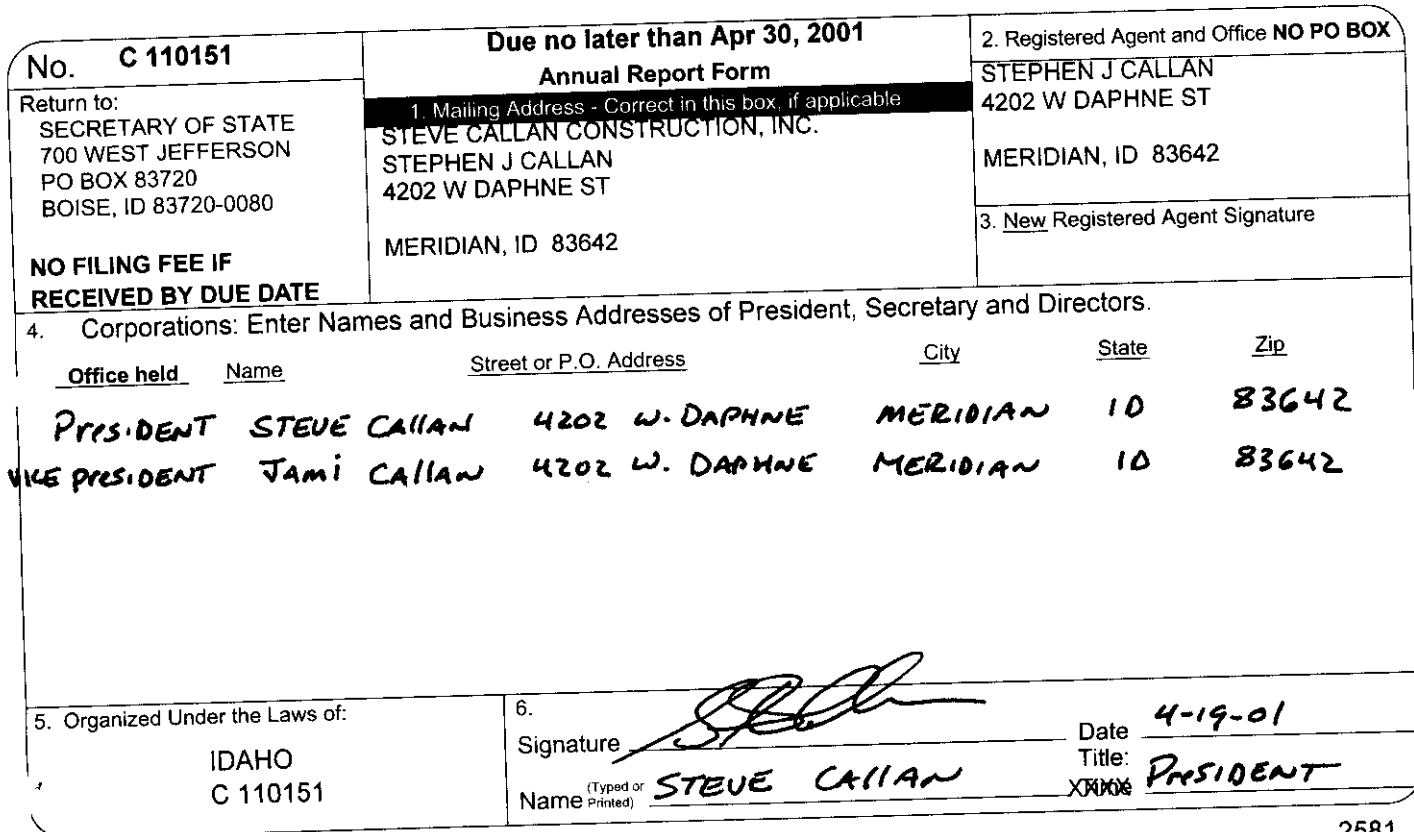 No. C 110151
Return to:
SECRETARY OF STATE
700 WEST JEFFERSON
PO BOX 83720
BOISE, ID 83720-0080
NO FILING FEE IF
RECEIVED BY DUE DATE
Due no later than Apr 30, 2001
Annual Report Form
1. Mailing Address - Correct in this box, if applicable
STEVE CALLAN CONSTRUCTION, INC.
STEPHEN J CALLAN
4202 W DAPHNE ST
MERIDIAN, ID 83642
2. Registered Agent and Office NO PO BOX
STEPHEN J CALLAN
4202 W DAPHNE ST
MERIDIAN, ID 83642
3. New Registered Agent Signature
4. Corporations: Enter Names and Business Addresses of President, Secretary and Directors.
Office held Name Street or P.O. Address City State Zip
PresiDENT STEVE CAllAN 4202 W. DAPHNE MERIDIAN ID 83642
VICE presiDENT Jami CAllAN 4202 W. DAPHNE MERIDIAN ID 83642
5. Organized Under the Laws of:
IDAHO
C 110151
6.
Signature
Date 4-19-01
Name (Typed or Printed) STEVE CAllAN
Title: PresIDENT
2581